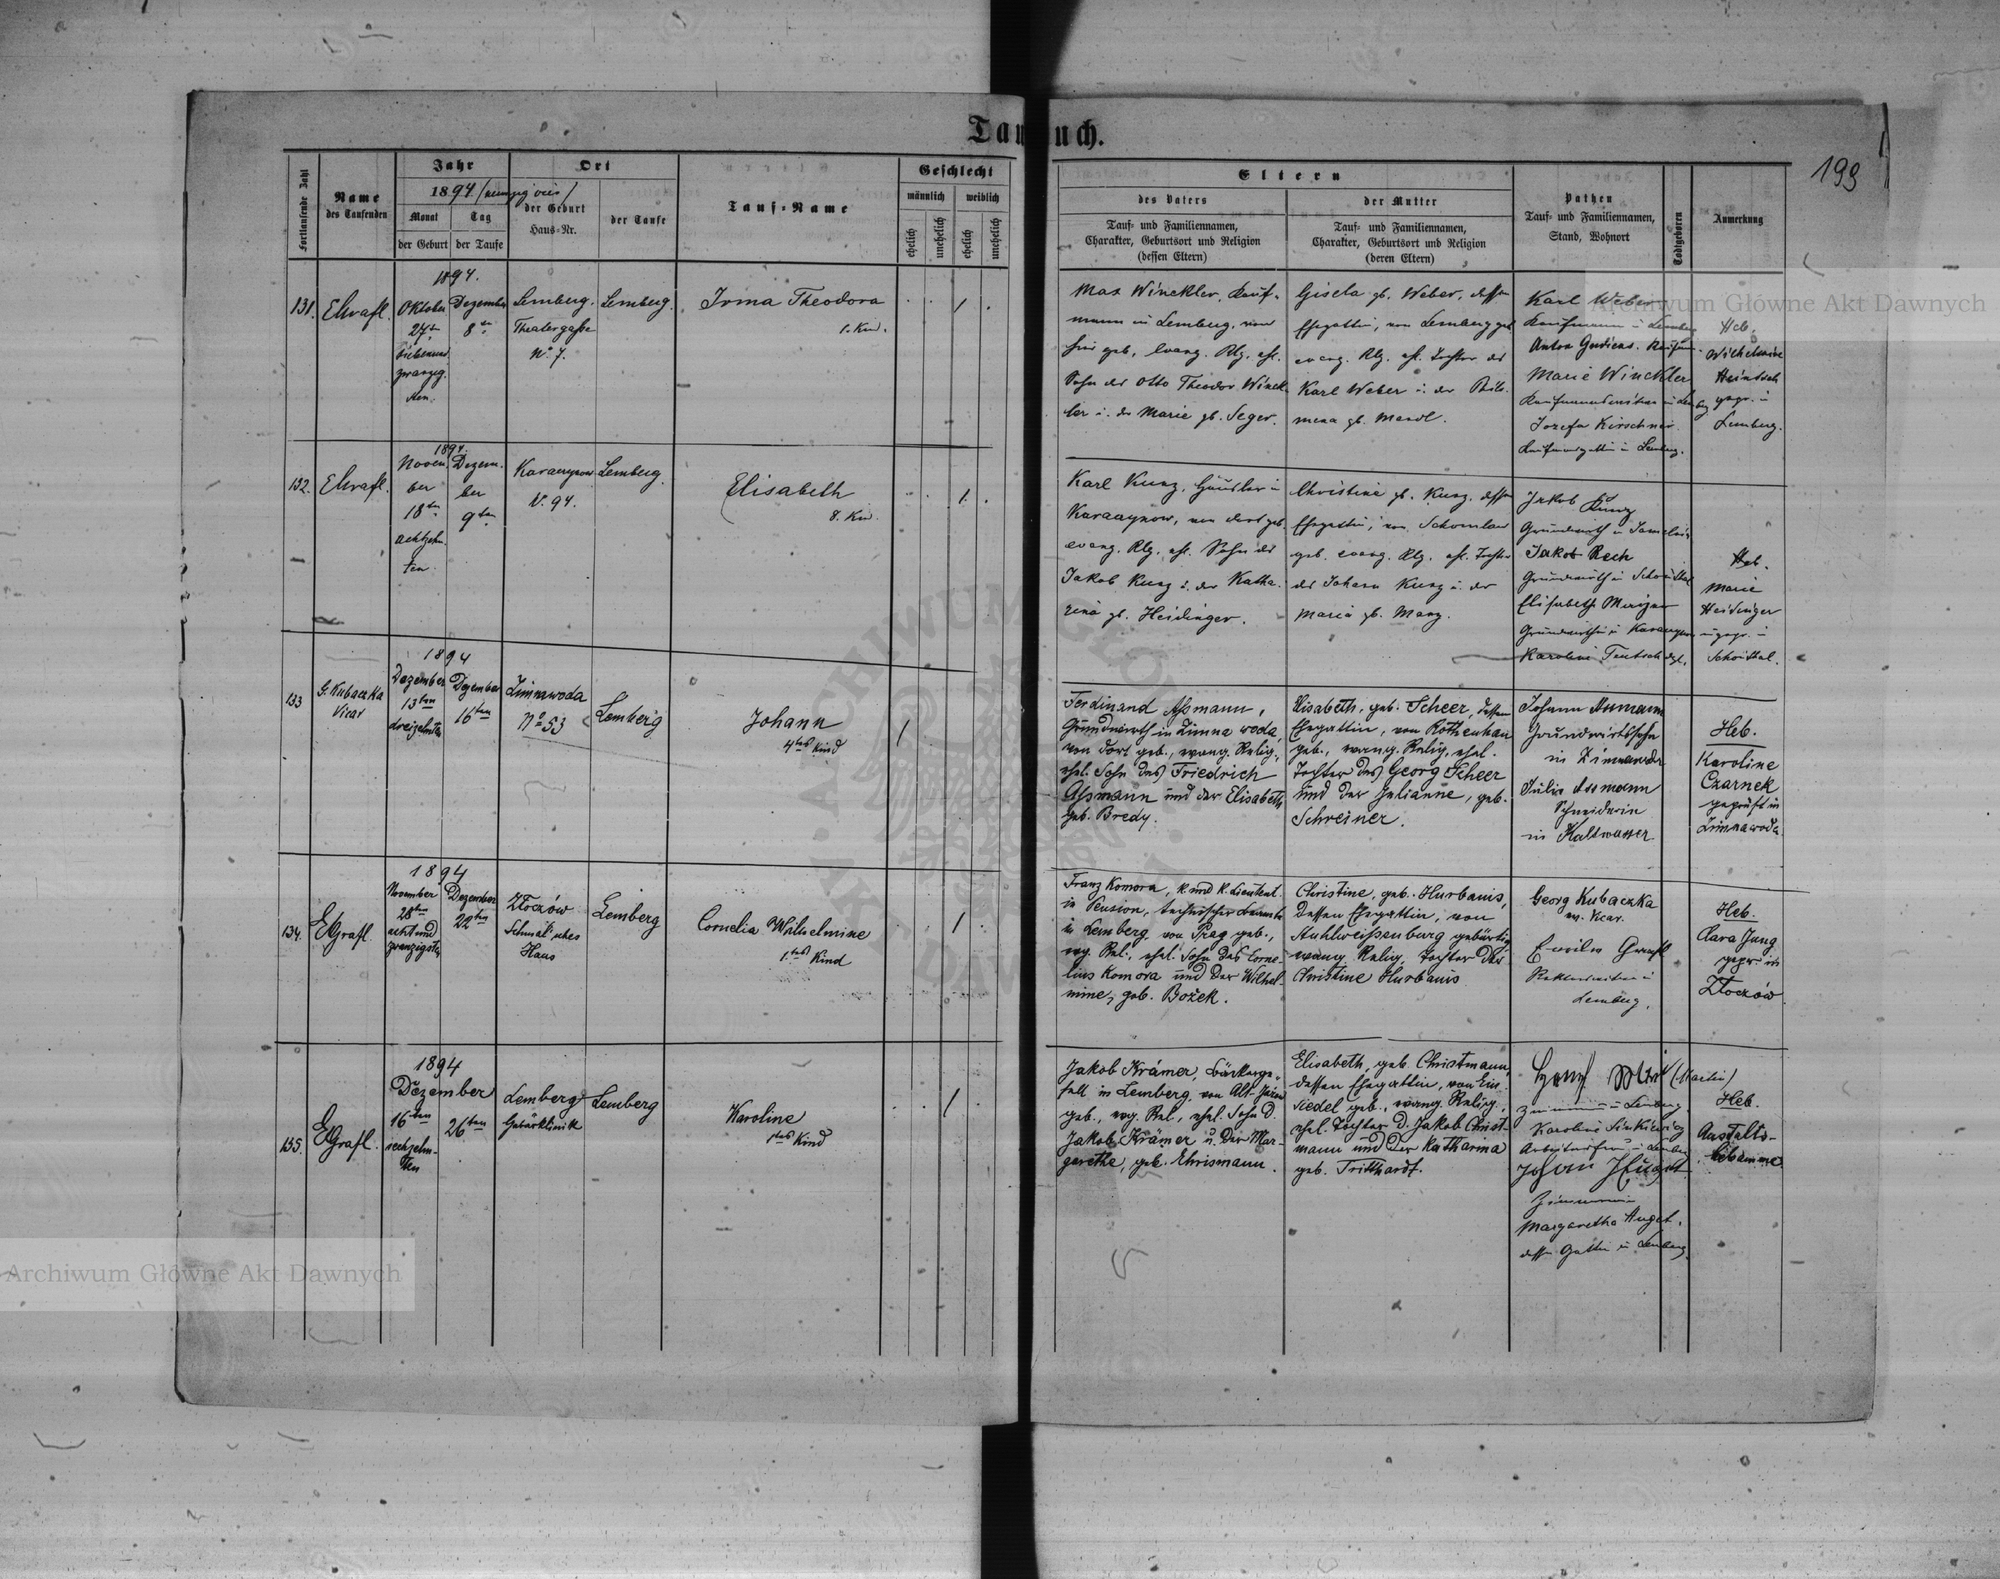 Taufbuch.
199
Fortlaufende Zahl
Name
des Taufenden
Jahr
1894
Monat
Tag
der Geburt
der Taufe
Ort
der Geburt
Haus-Nr.
der Taufe
Tauf-Name
Geschlecht
männlich
weiblich
ehelich
unehelich
ehelich
unehelich
Eltern
des Vaters
Tauf- und Familiennamen,
Charakter, Geburtsort und Religion
(dessen Eltern)
der Mutter
Tauf- und Familiennamen,
Charakter, Geburtsort und Religion
(deren Eltern)
Pathen
Tauf- und Familiennamen,
Stand, Wohnort
Todtgeboren
Anmerkung
131.
1894.
Oktober
27
siebenund
zwanzig.
sten.
Dezember
8ten
Lemberg.
Theatergasse
No. 7.
Lemberg.
Irma Theodora
1. Kind.
1
Max Winckler, Kauf-
mann in Lemberg, von
hier geb., evang. Rlg. ehl.
Sohn des Otto Theodor Winck
ler u. der Marie gb. Seger.
Gisela gb. Weber, dessen
Ehegattin, von Lemberg geb
evang. Rlg. ehl. Tochter des
Karl Weber u. der Philo-
mena gb. Mendl.
Karl Weber
Kaufmann in Lemberg
Marie Winckler
Josefa Kirschner
Kaufmannsgattin in Lemberg.
Heb.
Wilhelmine
Heintsch
gepr. in
Lemberg.
132.
1894.
Novem
ber
18ten
achtzehn
ten
Dezem-
ber
9ten
Karaczynow
N. 94.
Lemberg.
Elisabeth
8. Kind.
1.
Karl Kunz, Häusler in
Karaczynow, von dort geb.
evang. Rlg. ehl. Sohn des
Jakob Kunz u. der Katha-
rina gb. Heidinger.
Christine gb. Kunz, dessen
Ehegattin, von Schomlau
geb. evang. Rlg. ehl. Tochter
des Johann Kunz u. der
Maria gb. Manz.
Jakob Kunz
Jakob Rech
Elisabeth
Karoline Teutsch dgl.
Heb.
Marie
Heidinger
ungepr. in
Schönthal.
133
G. Kubaczka
Vicar
1894
Dezember
13ten
dreizehnten
Dezember
16ten
Zimnawoda
No 53
Lemberg
Johann
4tes Kind
1
Ferdinand Aßmann,
Grundwirth in Zimna woda,
von dort geb., evang. Relig.,
ehel. Sohn des Friedrich
Aßmann und der Elisabeth
geb. Bredy.
Elisabeth, geb. Scheer, dessen
Ehegattin, von Rottenhan
geb., evang. Relig. ehel.
Tochter des Georg Scheer
und der Julianne, geb.
Schreiner.
Johann Assmann
Grundwirtssohn
in Zimnawoda
Julia Assmann
Schneiderin
in Kaltwasser
Heb.
Karoline
Czarnek
geprüft in
Zimnawoda.
134.
E Grafl.
1894
November
28ten
achtund
zwanzigsten
Dezember
22ten
Złoczów
Schmal'sches
Haus
Lemberg
Cornelia Wilhelmine
1tes Kind
1
Franz Komora, k. und k. Lieutent.
in Pension, technischer Beamter
in Lemberg, von Prag geb.,
evg. Rel., ehel. Sohn des Corne-
lius Komora und der Wilhel-
mine, geb. Božek.
Christine, geb. Hurbanis,
dessen Ehegattin, von
Stuhlweißenburg gebürtig
evang. Relig. Tochter der
Christine Hurbanis
Georg Kubaczka
ev. Vicar.
Emilie Grafl
in
Lemberg.
Heb.
Clara Jung
gepr. in
Złoczów.
135.
E Grafl.
1894
Dezember
16ten
sechzehn-
ten
26ten
Lemberg
Gebärklinik
Lemberg
Karoline
1tes Kind
1
Jakob Krämer, Bäckerge-
sell in Lemberg, von Alt-
geb., evg. Rel., ehel. Sohn d.
Jakob Krämer u. der Mar-
garethe, geb. Ehrismann.
Elisabeth, geb. Christmann,
dessen Ehegattin, von Ein-
siedel geb., evang. Relig.,
ehel. Tochter d. Jakob Christ-
mann und der Katharina
geb. Tritthardt.
(Martin)
Karoline
in Lemberg
Johann Hugel
Margaretha Hugel,
dessen Gattin in Lemberg.
Heb.
Anstalts-
hebamme
Archiwum Główne Akt Dawnych
Archiwum Główne Akt Dawnych